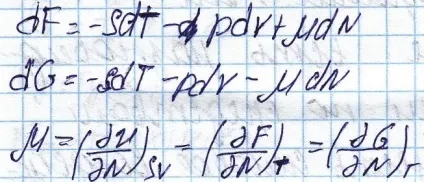 dF = -SdT - pdV + μdN
dG = -SdT - pdV - μdN
μ = (∂U/∂N)SV = (∂F/∂N)T = (∂G/∂N)T